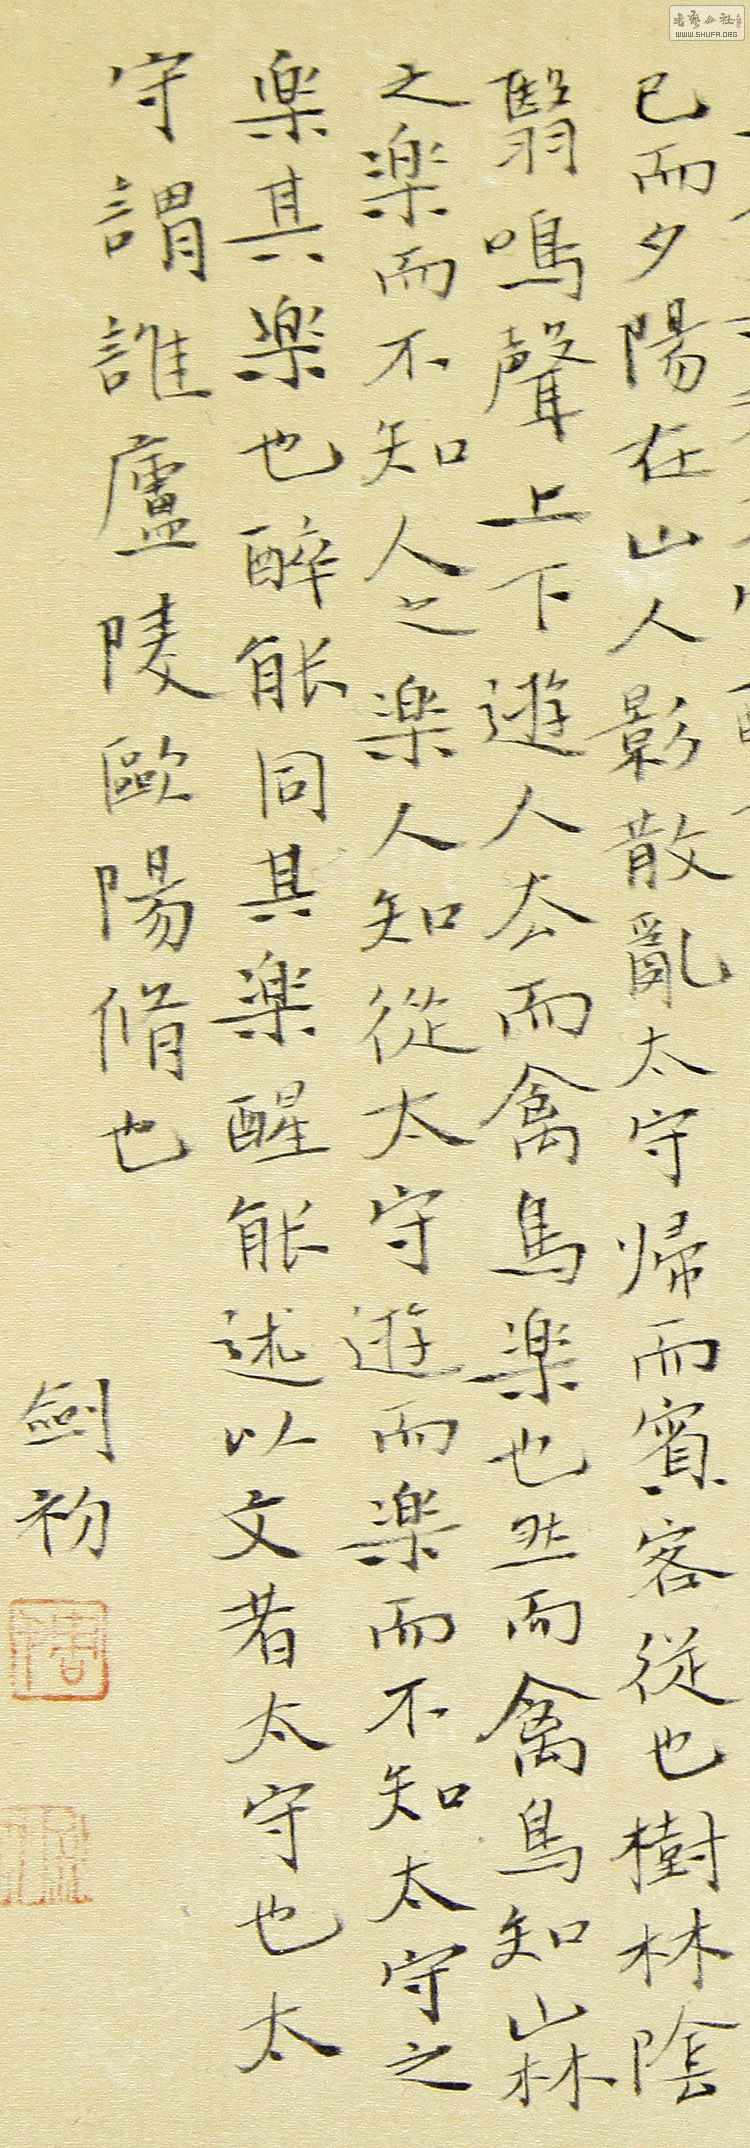 已而夕陽在山人影散亂太守歸而賓客從也樹林陰
翳鳴聲上下遊人去而禽鳥樂也然而禽鳥知山林
之樂而不知人之樂人知從太守遊而樂而不知太守之
樂其樂也醉能同其樂醒能述以文者太守也太
守謂誰廬陵歐陽脩也
劍初
WWW.SHUFA.ORG